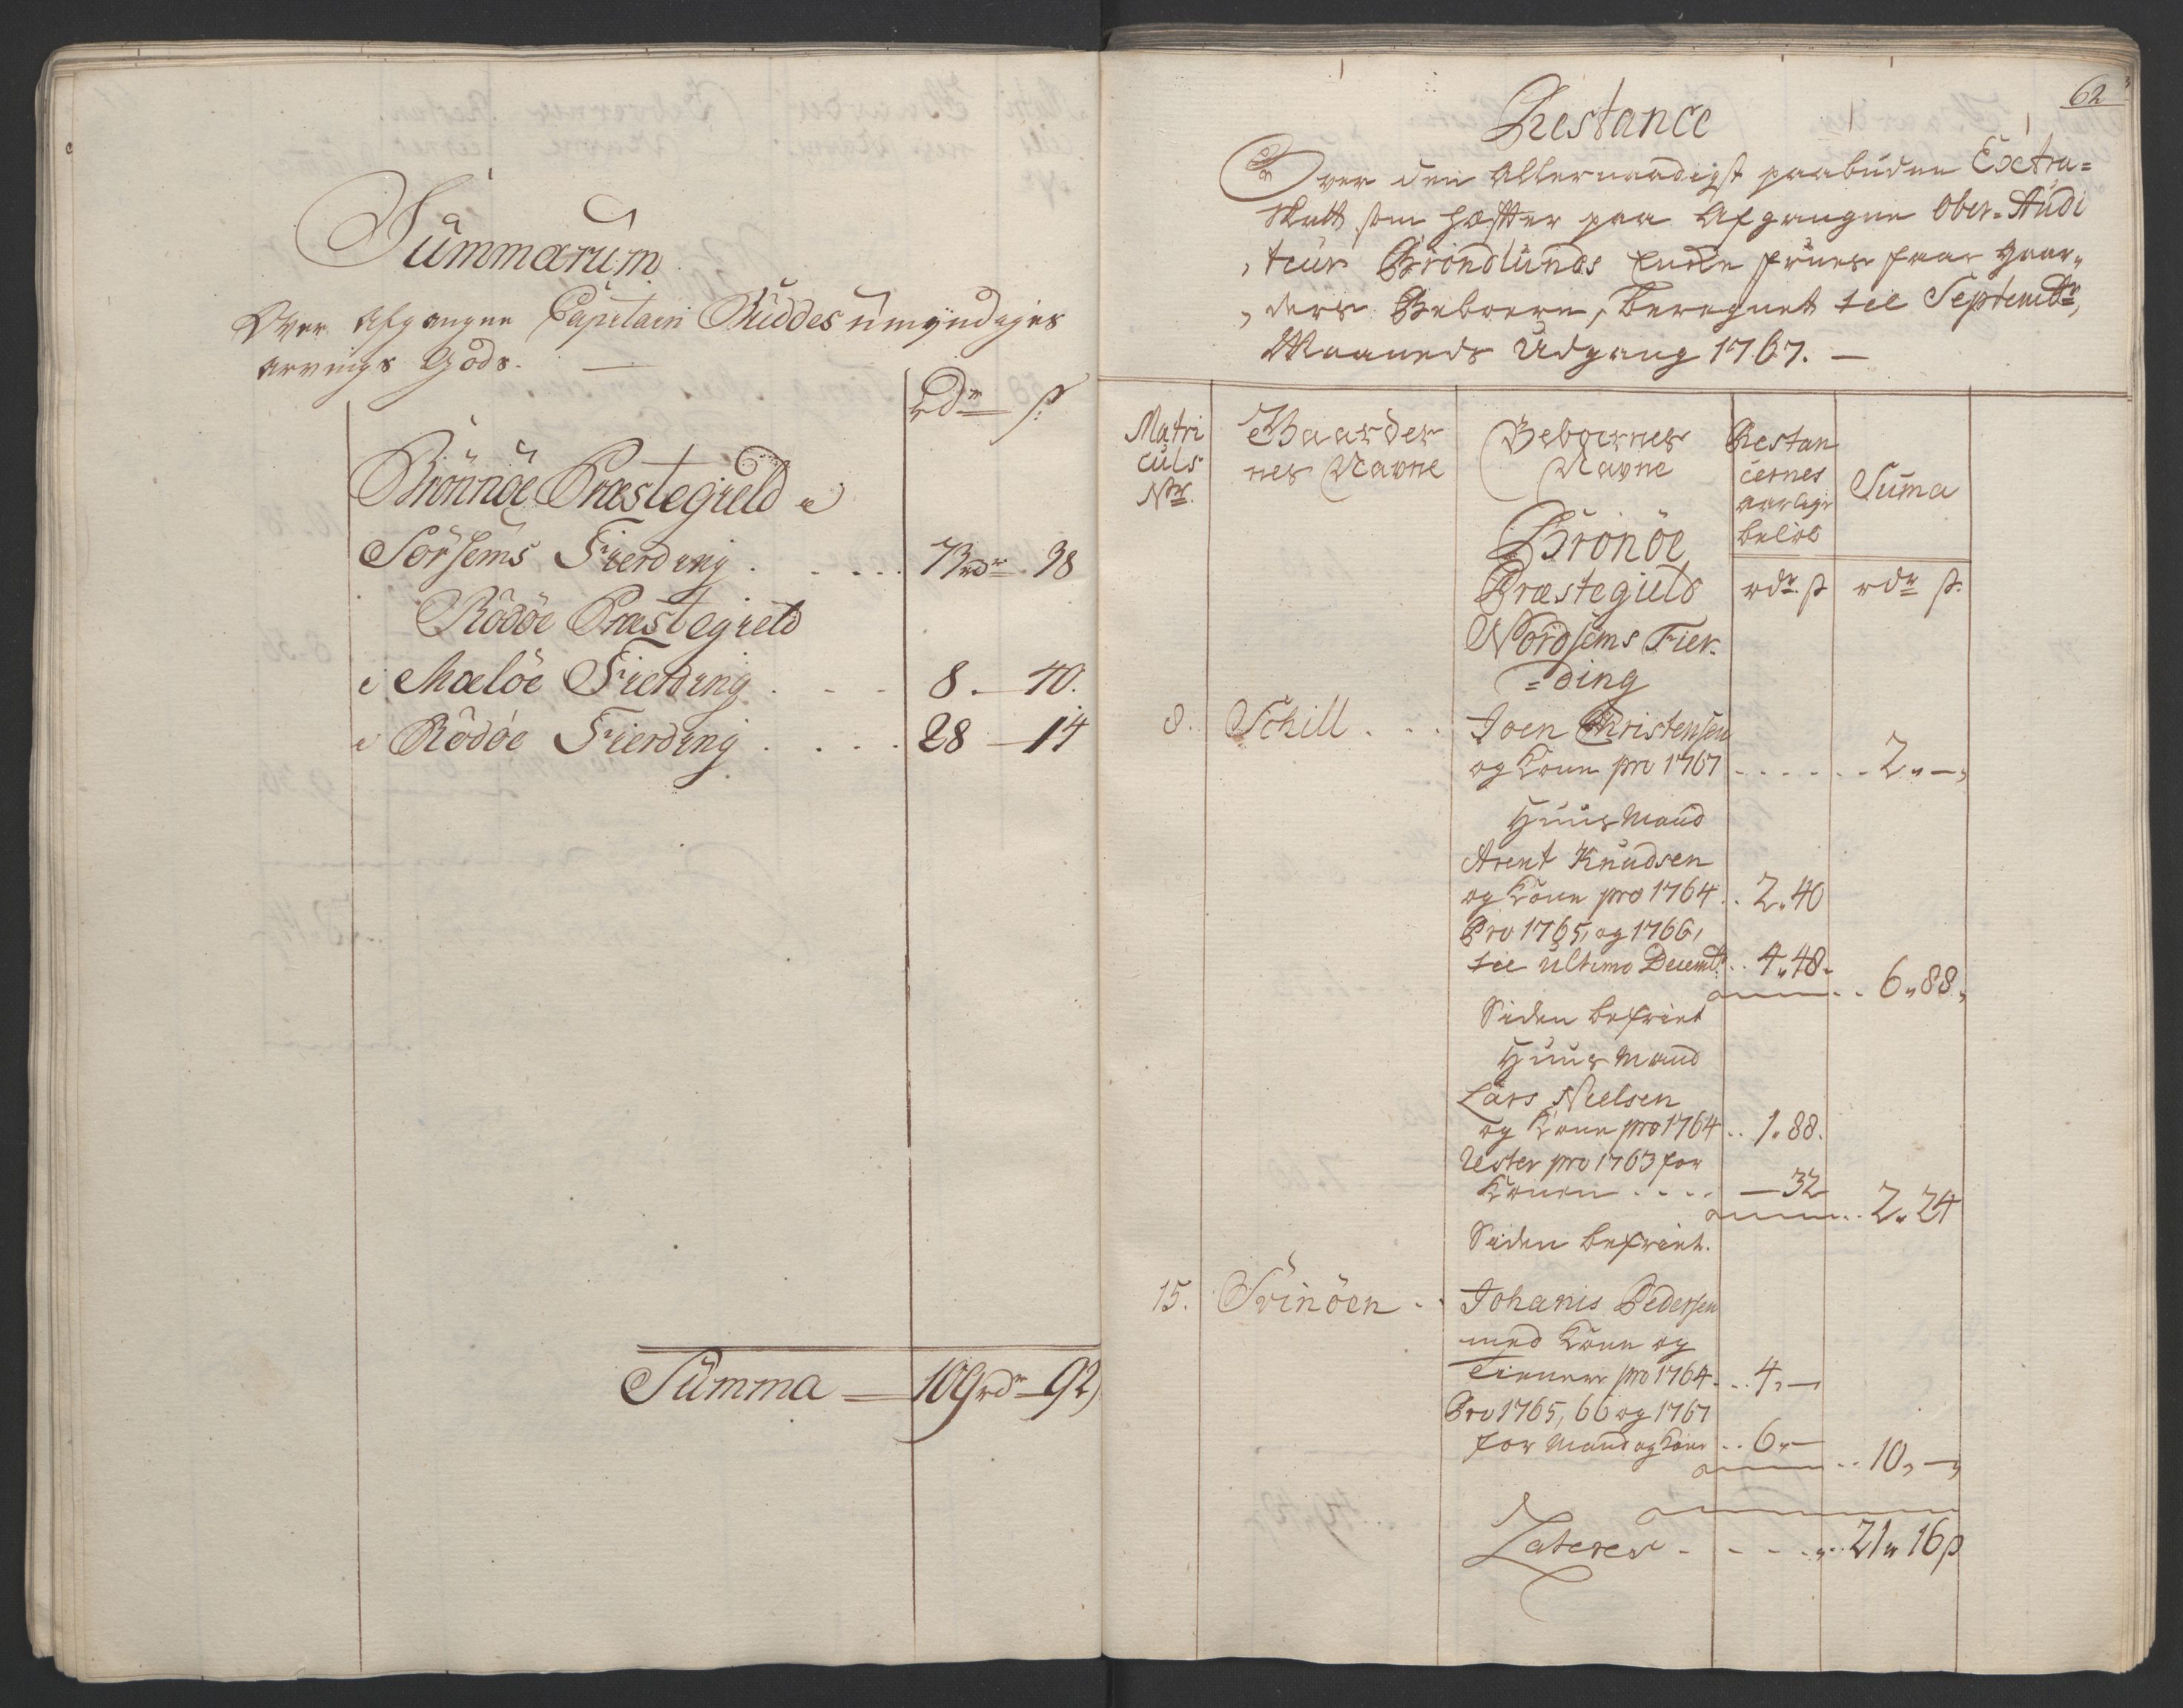 Summarum
Over Afgangne Capitain Buddes umyndiges
arvings Gods. —
rdr ß.
Brönnöe Præstegield i
Sörsems Fierding . . . . . 73 rdr. 38
Rödöe Præstegield
i Meelöe Fierding . . . 8. — 40.
i Rödöe Fierding . . . . 28 — 14
Summa — 109 rdr — 92,
62
Restance
Over den Allernaadigst paabudne Extra=
Skatt som hæffter paa Afgangne Ober-Audi
, teur Gröndlunds Frues Gaar„
„ ders Beboere, beregnet til Septembr,
Maaneds Udgang 1767. —
Matri
culs
Nr.
Gaarder
nes Navne
Beboernes
Navne
Restan
cernes
aarlige
beløb
Suma
rdr. ß
rdr ß.
Brönöe
Præstegield
Nordsems Fier-
=ding
8. Schill . . . Joen Christensen
og Kone pro 1767 . . . . . . 2 „ — „
Huus Mand
Arent Knudsen
og Kone pro 1764 . . 2. 40
Pro 1765, og 1766,
til ultimo Decembr. . . 4. 48.
. . 6 „ 88 „
Siden befriet
Huus Mand
Lars Nielsen
og Kone pro 1764 . . 1. 88.
Rester pro 1763 for
Konen . . . . — 32
. . 2. 24
Siden befriet.
15. Svinöen . . Johanis Pedersen
med Kone og
Tienere pro 1764 . . . 4, —
Pro 1765, 66 og 1767
for Mand og Kone . . 6. —
. . 10, — „
Lateres . . . . . . . 21 „ 16 ß